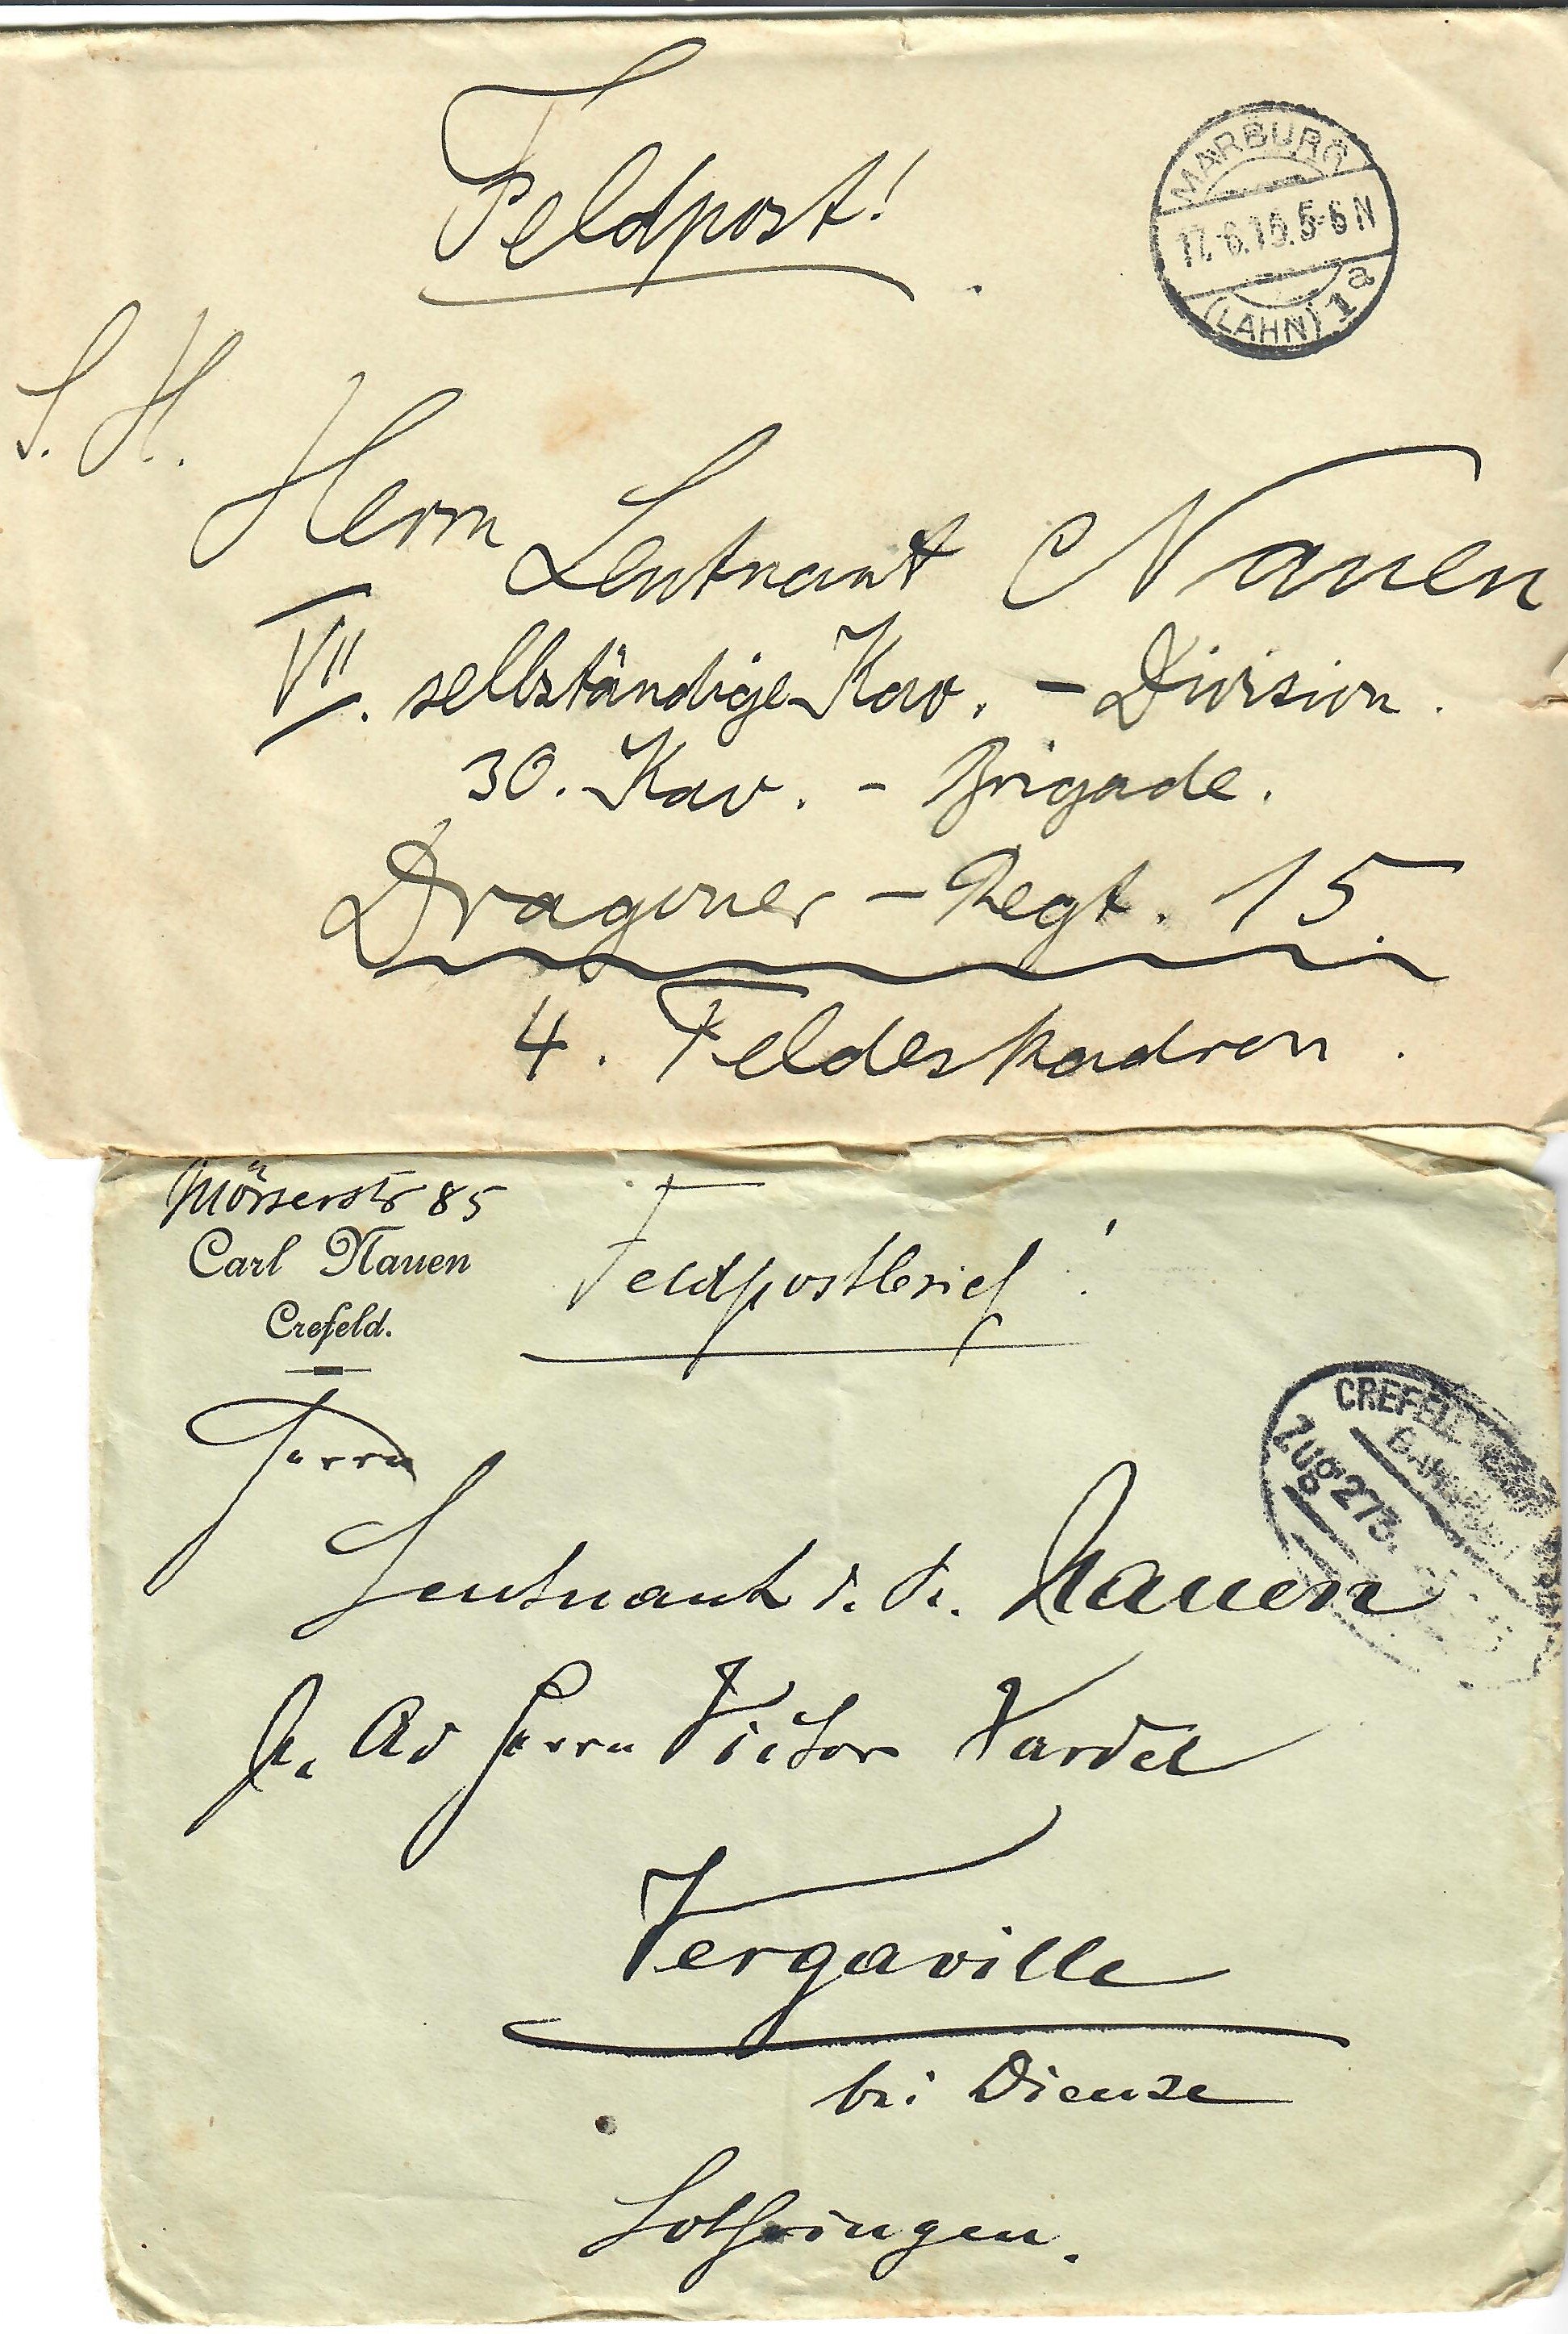 Feldpost!
MARBURG
17.6.15. 5-6 N
(LAHN) 1a
S. H.
Herrn Leutnant Nauen
VII. selbständige Kav. - Division.
30. Kav. - Brigade.
Dragoner - Regt. 15.
4. Feldeskadron.
Mörserstr 85
Carl Nauen
Crefeld.
Feldpostbrief!
CREFELD
Zug 273.
Herrn
Leutnant d. R. Nauen
Herrn Victor Kardel
Vergaville
bei Dieuze
Lothringen.